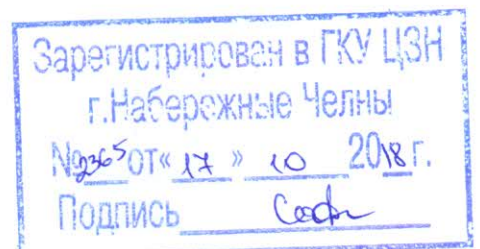 Зарегистрирован в ГКУ ЦЗН
г.Набережные Челны
№2365 от« 17 » 10 2018 г.
Подпись